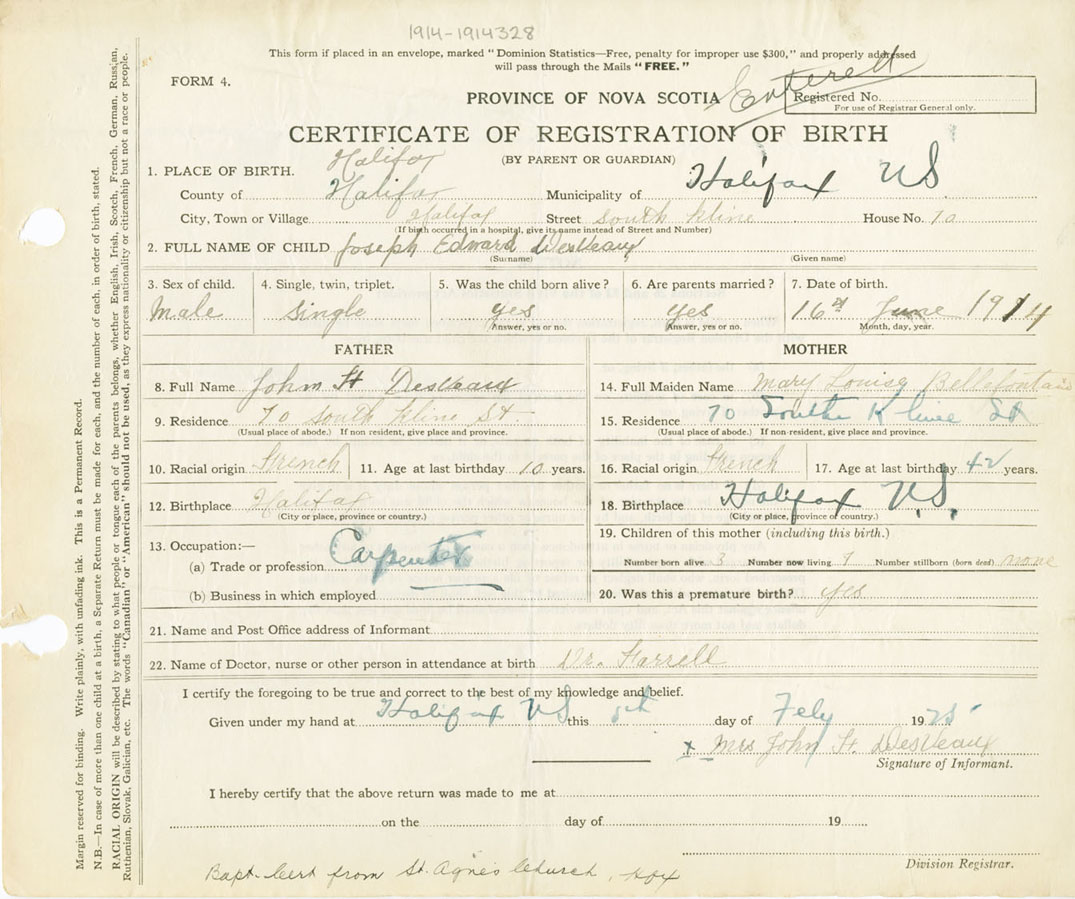 1914-1914328
This form if placed in an envelope, marked "Dominion Statistics—Free, penalty for improper use $300," and properly addressed
will pass through the Mails "FREE."
FORM 4.
PROVINCE OF NOVA SCOTIA
Registered No.
For use of Registrar General only.
CERTIFICATE OF REGISTRATION OF BIRTH
(BY PARENT OR GUARDIAN)
1. PLACE OF BIRTH. Halifax
County of Halifax Municipality of Halifax NS
City, Town or Village Halifax Street South Kline House No. 70
(If birth occurred in a hospital, give its name instead of Street and Number)
2. FULL NAME OF CHILD Joseph Edward DesVeaux
(Surname) (Given name)
3. Sex of child. 4. Single, twin, triplet. 5. Was the child born alive? 6. Are parents married? 7. Date of birth.
Male Single yes yes 16th June 1914
Answer, yes or no. Answer, yes or no. Month, day, year.
FATHER MOTHER
8. Full Name John St DesVeaux 14. Full Maiden Name Mary Louise
9. Residence 70 South Kline St 15. Residence 70 South Kline St
(Usual place of abode.) If non resident, give place and province. (Usual place of abode.) If non-resident, give place and province.
10. Racial origin French 11. Age at last birthday years. 16. Racial origin French 17. Age at last birthday 42 years.
12. Birthplace Halifax 18. Birthplace Halifax N.S.
(City or place, province or country.) (City or place, province or country.)
13. Occupation:— 19. Children of this mother (including this birth.)
(a) Trade or profession Carpenter Number born alive 3 Number now living Number stillborn (born dead) none
(b) Business in which employed 20. Was this a premature birth? yes
21. Name and Post Office address of Informant
22. Name of Doctor, nurse or other person in attendance at birth Dr. Farrell
I certify the foregoing to be true and correct to the best of my knowledge and belief.
Given under my hand at Halifax NS this day of Feby 1925
x Mrs John St. DesVeaux
Signature of Informant.
I hereby certify that the above return was made to me at
on the day of 19
Division Registrar.
Bapt. Cert from St. Agnes Church, Hfx
Margin reserved for binding. Write plainly, with unfading ink. This is a Permanent Record.
N.B.—In case of more than one child at a birth, a Separate Return must be made for each, and the number of each, in order of birth, stated.
RACIAL ORIGIN will be described by stating to what people or tongue each of the parents belongs, whether English, Irish, Scotch, French, German, Russian,
Ruthenian, Slovak, Galician, etc. The words "Canadian" or "American" should not be used, as they express nationality or citizenship but not a race or people.